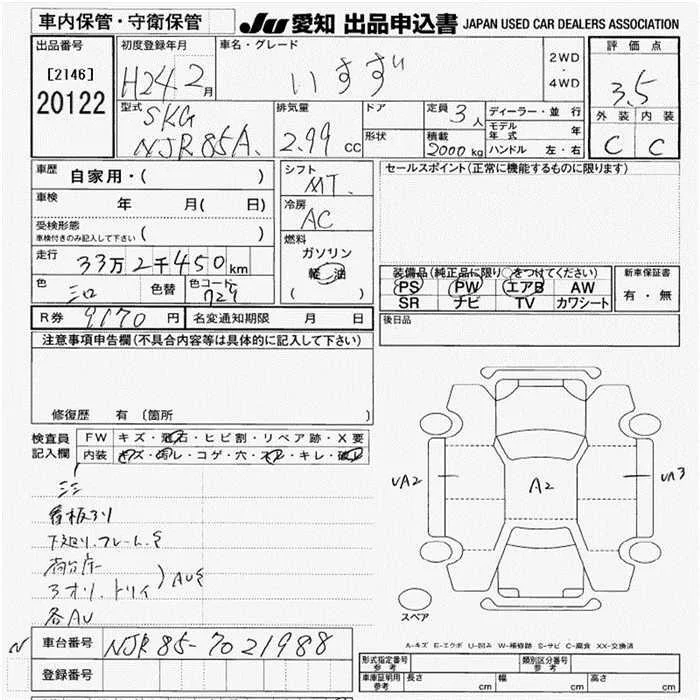 車内保管・守衛保管
JU 愛知 出品申込書 JAPAN USED CAR DEALERS ASSOCIATION
出品番号
[2146]
20122
初度登録年月
H24 2月
車名・グレード
いすず
2WD
・
4WD
評価点
3.5
外装 内装
C C
型式
SKG
NJR85A
排気量
2.99 cc
ドア
形状
定員 3人
積載
2000kg
ディーラー・並行
モデル年式 年
ハンドル 左・右
車歴
自家用・( )
車検
年 月( 日)
受検形態
車検付きのみ記入して下さい ( )
走行
33万2千450km
色
シロ
色替
色コード
729
シフト
MT
冷房
AC
燃料
ガソリン
軽油
( )
セールスポイント(正常に機能するものに限ります)
装備品(純正品に限り○をつけてください)
PS PW エアB AW
SR ナビ TV カワシート
新車保証書
有・無
後日品
R券 9170円
名変通知期限 月 日
注意事項申告欄(不具合内容等は具体的に記入して下さい)
修復歴 有 〔箇所 〕
検査員
記入欄
FW キズ・飛石・ヒビ割・リペア跡・X要
内装 キズ・汚レ・コゲ・穴・スレ・キレ・破レ
看板
各AU
UA2
A2
UA3
スペア
A-キズ E-エクボ U-凹み W-補修跡 S-サビ C-腐食 XX-交換済
車台番号
NJR85-7021988
登録番号
形式指定番号
参考
類別区分番号
参考
車庫証明用
参考
長さ cm
幅 cm
高さ cm